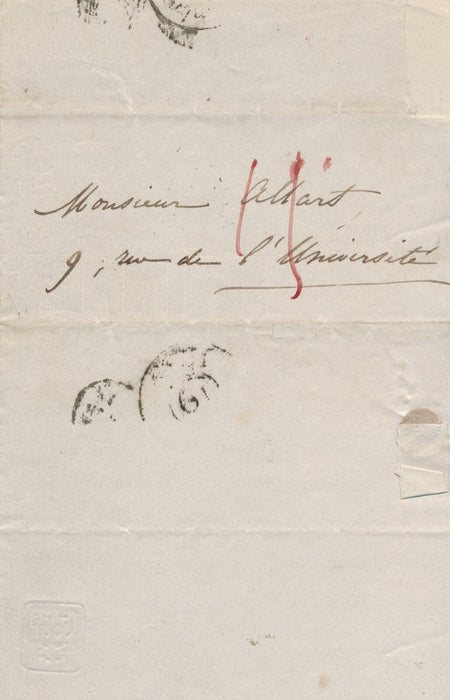 Monsieur Allart,
9, rue de l'Université
15
(6)